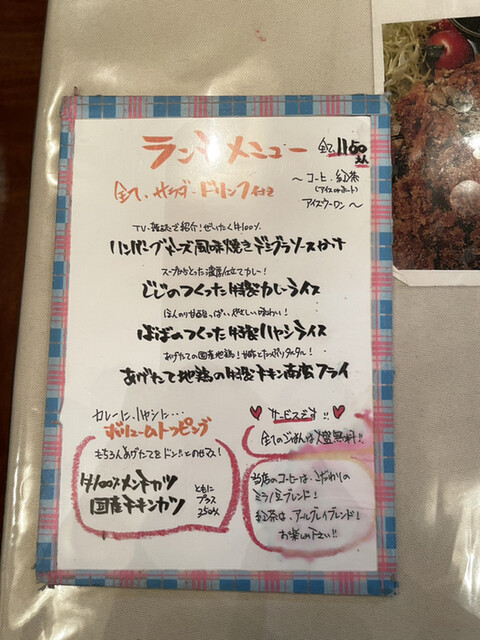 ランチメニュー 全て1150えん
全て、サラダ・ドリンク付き
〜コーヒー、紅茶
(アイスorホット)
アイスウーロン〜
TV・雑誌で紹介!ぜいたく牛100%
ハンバーグチーズ風味焼きデミグラソース
スープからとった濃厚仕立てカレー!
じじのつくった特製カレーライス
ほんのり甘く
やさしい味わい!
ばばのつくった特製ハヤシライス
あげたての国産地鶏!
たっぷりタルタル!
あげたて地鶏の特製チキン南蛮フライ
カレーに、ハヤシに…
ボリュームトッピング
もちろんあげたてをドン!とのせて!
牛100%メンチカツ
国産チキンカツ
ともに
プラス
250えん
サービスです!!
全てのごはん大盛無料!!
当店のコーヒーは、こだわりの
ミラノ豆ブレンド!
紅茶は、アールグレイブレンド!
お楽しみ下さい!!